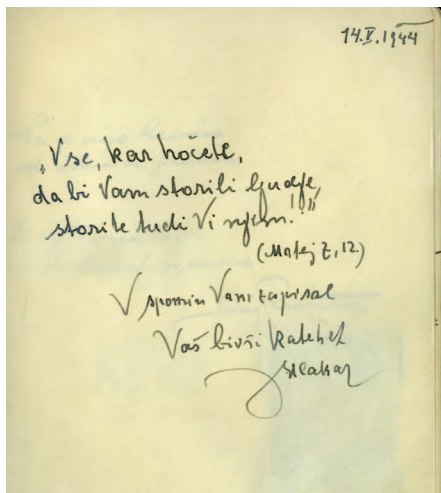 14.V.1944
„Vse, kar hočete,
da bi Vam storili ljudje,
storite tudi Vi njim!"
(Matej 7, 12.)
V spomin Vam zapisal
Vaš bivši katehet